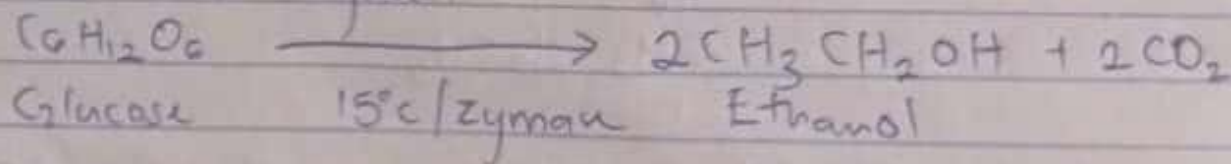 C6H12O6 ⟶ 2CH3CH2OH + 2CO2
Glucose 15°c/zymase Ethanol